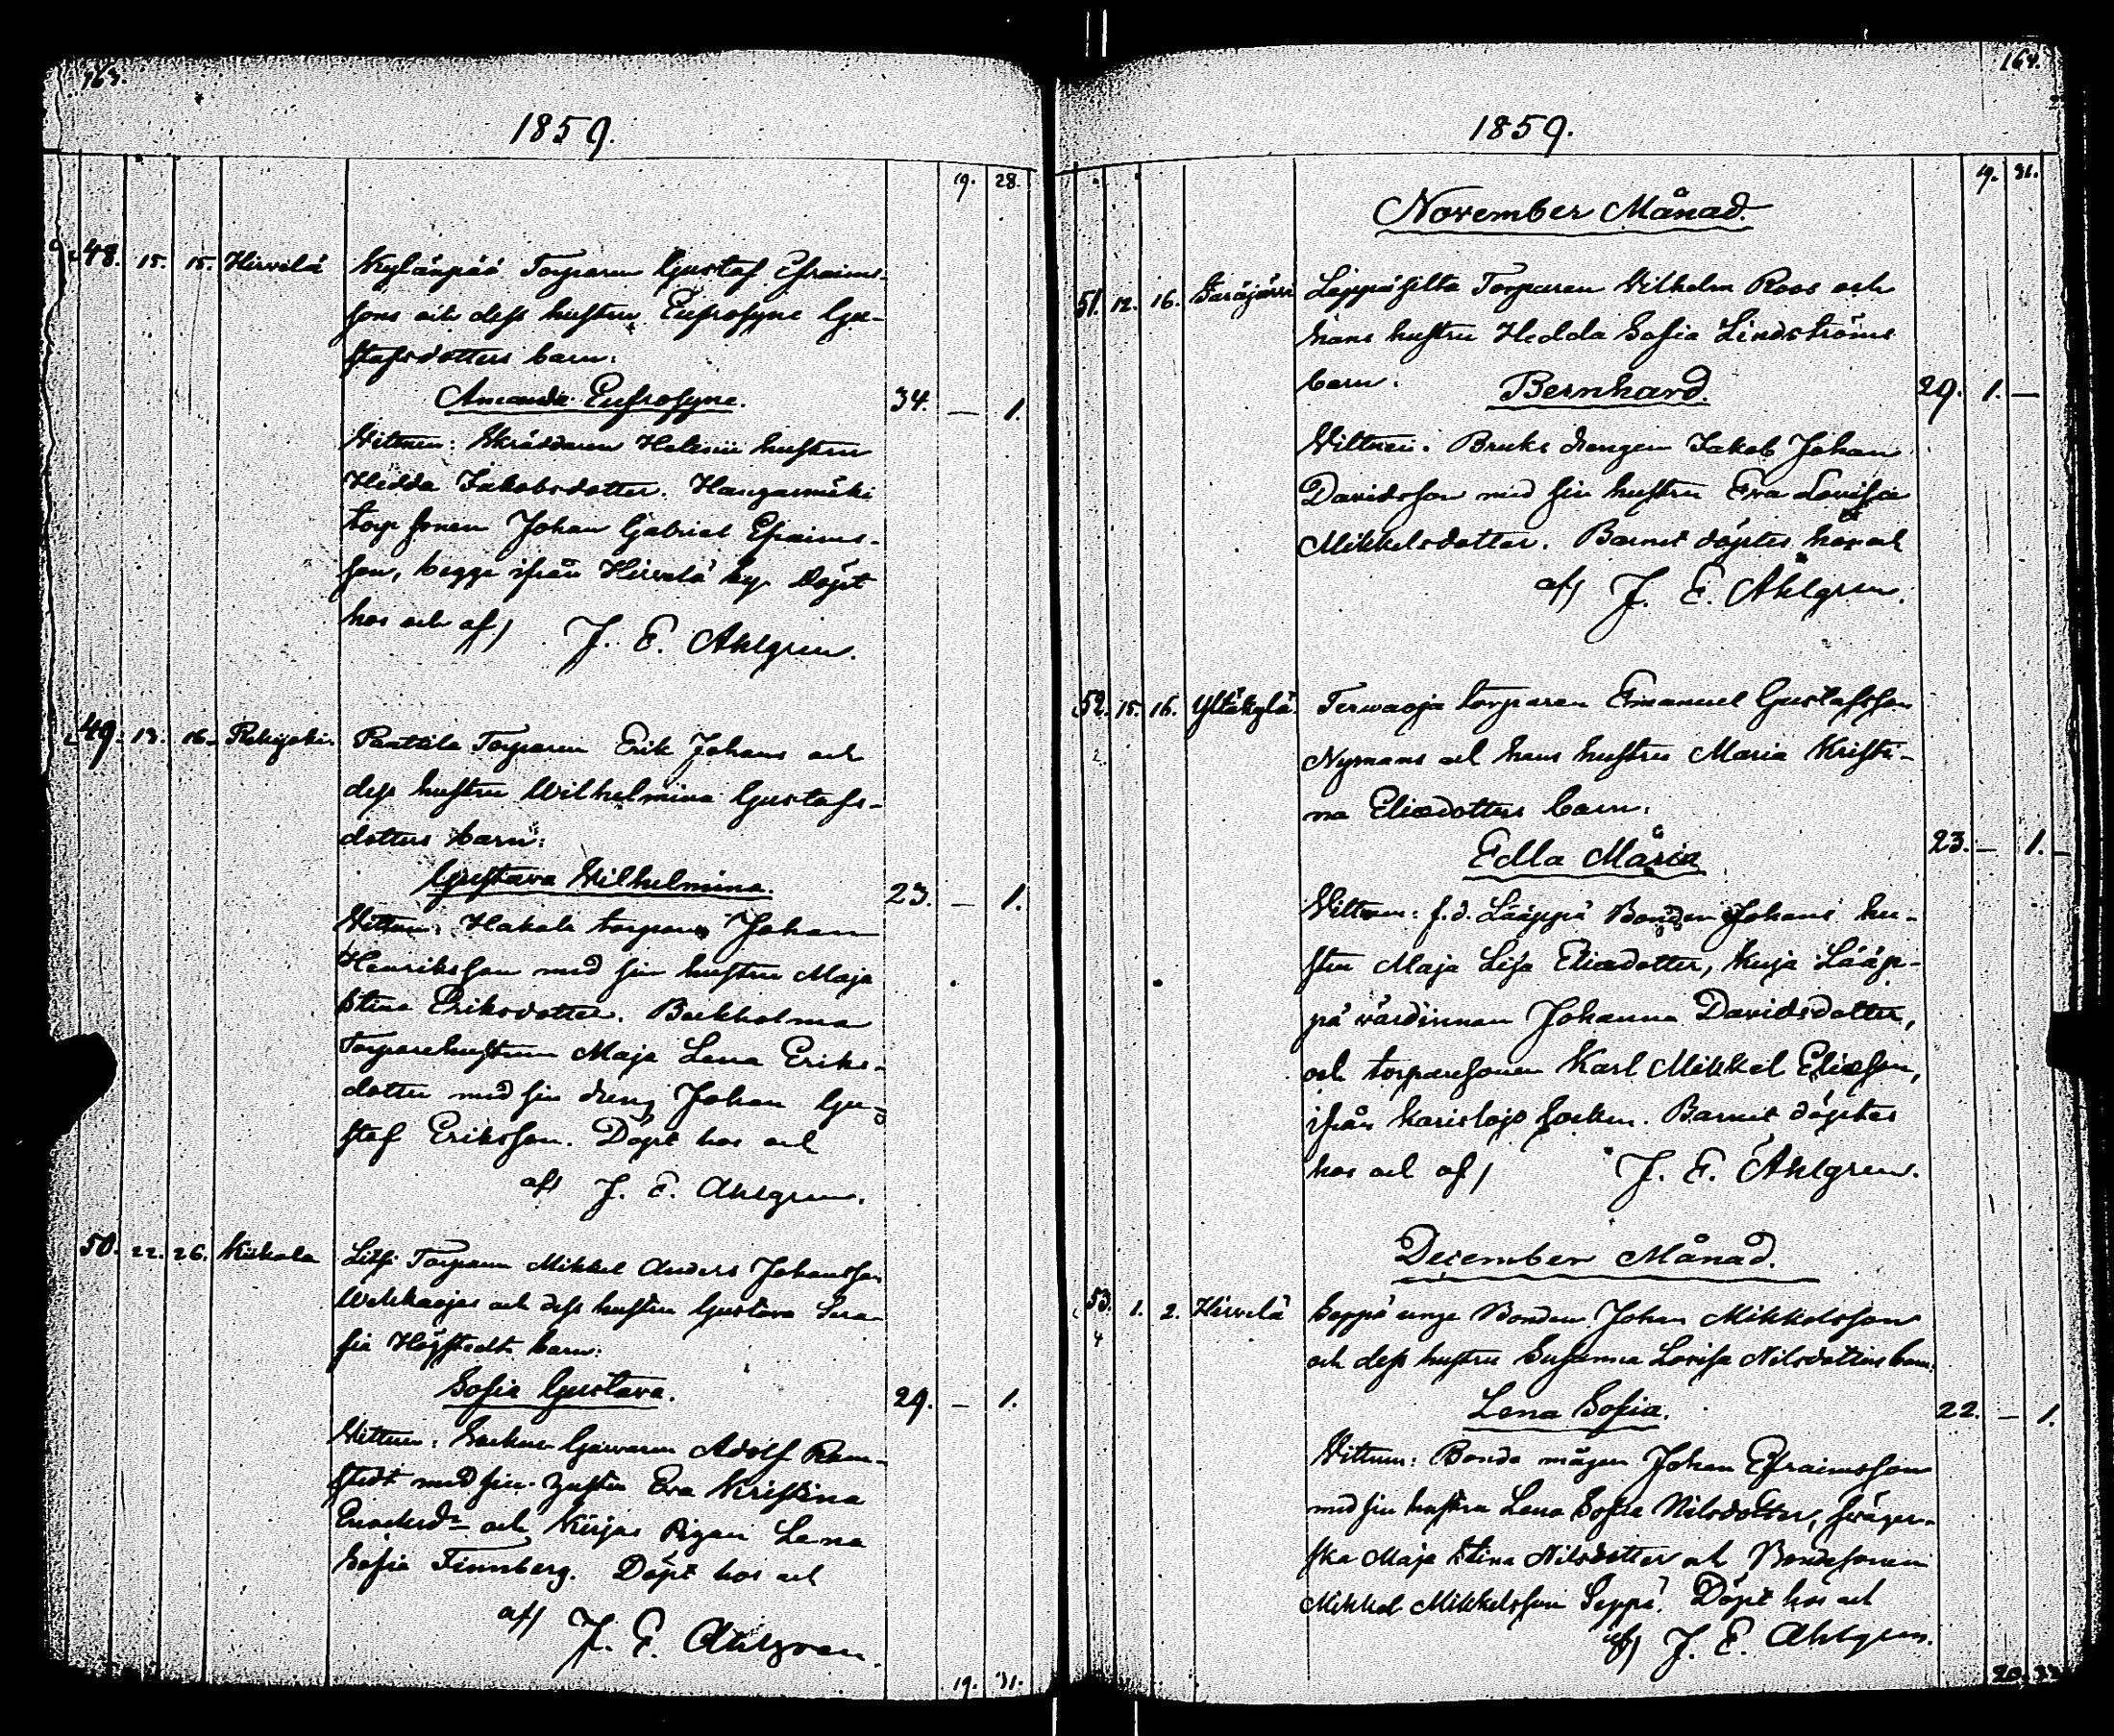 163.
1859.
19. 28.
48. 15. 15. Hirvelä Kylänpää Torparen Gustaf Efraims-
sons och dess hustru Eufrosyne Gu-
stafsdotters barn:
Amanda Eufrosyne. 34. — 1.
Vittnen: Skräddaren Helenii hustru
Hedda Jakobsdotter. Hangasmäki
torp sonen Johan Gabriel Efraims-
son, begge ifrån Hirvelä by. Döpt
hos och af/ J. E. Ahlgren.
49. 13. 16. Rekijoki. Panttila Torparen Erik Johans och
dess hustru Wilhelmina Gustafs-
dotters barn:
Gustava Wilhelmina. 23. — 1.
Vittnen: Hakala torparen Johan
Henriksson med sin hustru Maja
Stina Eriksdotter. Backholma
Torparehustrun Maja Lena Eriks-
dotter med sin dreng Johan Gu-
staf Eriksson. Döpt hos och
af/ J. E. Ahlgren.
50. 22. 26. Kiikala Torparen Mikkel Anders Johansson
och dess hustru Gustava Sera-
fia Högstedts barn:
Sofia Gustava. 29. — 1.
Vittnen: Socknen Garwaren Adolf Ram-
stedt med sin hustru Eva Kristina
Enocksdr och Kirjas Pigan Lena
Sofia Finnberg. Döpt hos och
af/ J. E. Ahlgren.
19. 31.
164.
1859.
19. 31.
November Månad.
51. 12. 16. Saräjärvi Läppäsilta Torparen Vilhelm Roos och
hans hustru Hedda Sofia Lindströms
barn: Bernhard. 29. 1. —
Vittnen: Bruks drengen Jakob Johan
Davidsson med sin hustru Eva Lovisa
Mikkelsdotter. Barnet döptes hos och
af/ J. E. Ahlgren.
52. 15. 16. Yltäkylä. Terwaoja torparen Emanuel Gustafsson
Nymans och hans hustru Maria Kristi-
na Eliædotters barn:
Edla Maria 23. — 1. —
Vittnen: f.d. Lääppä Bonden Johans hu-
stru Maja Lisa Eliædotter, Kuja Lääp-
pä värdinnan Johanna Davidsdotter,
och torparesonen Karl Mikkel Eliæson,
ifrån Karislojo socken. Barnet döptes
hos och af/ J. E. Ahlgren.
December Månad.
53. 1. 2. Hirvelä Seppä unge Bonden Johan Mikkelsson
4
och dess hustru Susanna Lovisa Nilsdotters barn.
Lena Sofia. 22. — 1.
Vittnen: Bonde mågen Johan Efraimsson
med sin hustru Lena Sofia Nilsdotter, sväger-
ska Maja Stina Nilsdotter och Bondesonen
Mikkel Mikkelsson Seppä. Döpt hos och
af/ J. E. Ahlgren.
20. 33